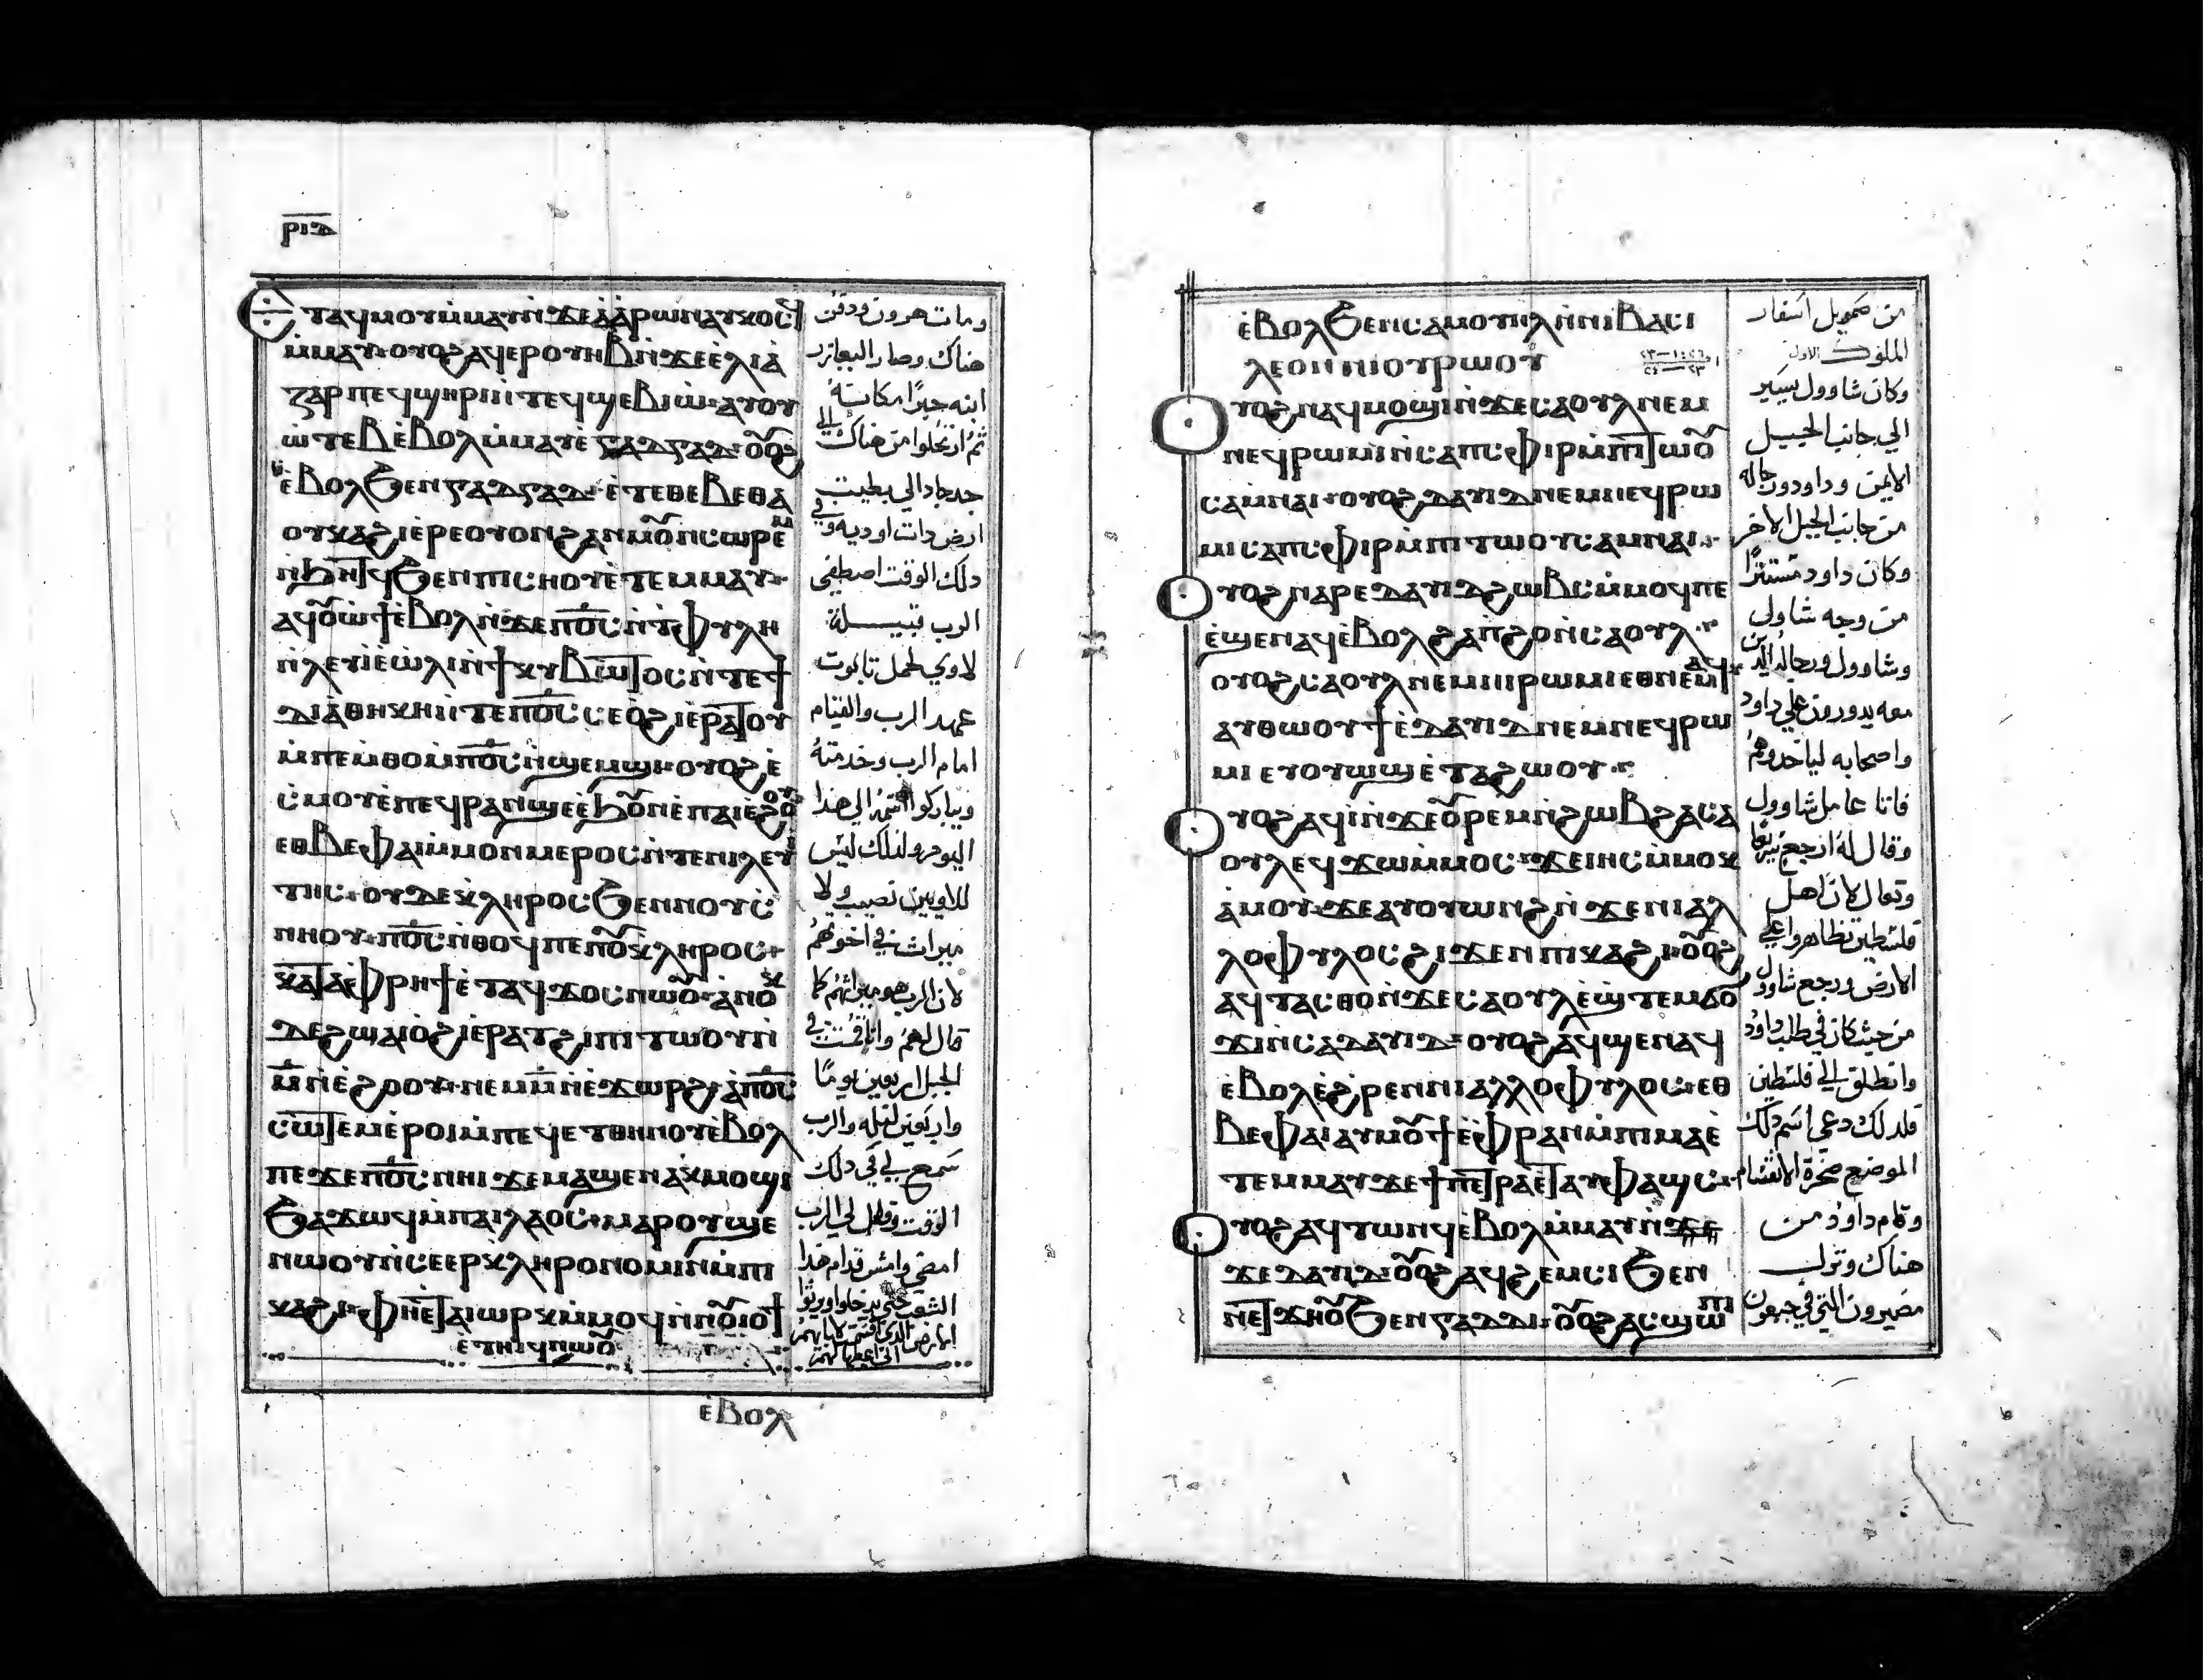 ⲣⲓⲇ
ⲧⲁϥⲙⲟⲩⲙ̀ⲙⲁⲩⲛ̀ϫⲉⲁ̀ⲁ̀ⲣⲱⲛⲁⲩⲕⲟⲥϥ
ⲙ̀ⲙⲁⲩ ⲟⲩⲟϩⲁϥⲉⲣⲟⲩⲏⲃⲛ̀ϫⲉⲉ̀ⲗⲓⲁ̀
ⲍⲁⲣⲡⲉϥϣⲏⲣⲓⲛ̀ⲧⲉϥϣⲉⲃⲓⲱ̀ ⲁⲩⲟⲩ
ⲱ̀ⲧⲉⲃⲉ̀ⲃⲟⲗⲙ̀ⲙⲁⲩⲉ̀ⲅⲁⲇⲅⲁⲇ ⲟⲩⲟϩ
ⲉ̀ⲃⲟⲗϧⲉⲛⲅⲁⲇⲅⲁⲇ ⲉ̀ⲧⲉⲑⲉⲃⲉⲑⲁ
ⲟⲩⲕⲁϩⲓⲉ̀ⲣⲉⲟⲩⲟⲛϩⲁⲛⲙⲟ̅ⲛ̀ⲥⲱⲣⲉⲙ
ϧⲉⲛⲡⲓⲥⲏⲟⲩⲉ̀ⲧⲉⲙⲙⲁⲩ
ⲁϥⲟ̅ⲱ̀ϯⲉ̀ⲃⲟⲗⲛ̀ϫⲉⲡⲟ̅ⲥ̅ⲛ̀ϯⲫⲩⲗⲏ
ⲛ̀ⲗⲉⲩⲓⲉ̀ⲱ̀ⲗⲓⲛ̀ϯⲕⲩⲃⲱⲧⲟⲥⲛ̀ⲧⲉϯ
ⲇⲓⲁ̀ⲑⲏⲕⲏⲛ̀ⲧⲉⲡⲟ̅ⲥ̅ ⲥⲉⲟϩⲓⲉ̀ⲣⲁⲧⲟⲩ
ⲙ̀ⲡⲉⲙ̀ⲑⲟⲙ̀ⲡⲟ̅ⲥ̅ⲛ̀ϣⲉⲙϣⲓ ⲟⲩⲟϩⲉ̀
ⲥ̀ⲙⲟⲩⲉ̀ⲡⲉϥⲣⲁⲛ
ⲉⲑⲃⲉⲫⲁⲓⲙ̀ⲙⲟⲛⲙⲉⲣⲟⲥⲛ̀ⲧⲉⲛⲓⲗⲉⲩⲓ
ⲧⲏⲥ ⲟⲩⲇⲉⲕ̀ⲗⲏⲣⲟⲥϧⲉⲛⲛⲟⲩⲥ̀
ⲛⲏⲟⲩ ⲡⲟ̅ⲥ̅ⲛ̀ⲑⲟϥⲡⲉⲡⲟ̅ⲕ̀ⲗⲏⲣⲟⲥ
ⲕⲁⲧⲁⲫⲣⲏϯⲉ̀ⲧⲁϥϫⲟⲥⲛⲱⲟ̅ ⲁⲛⲟⲕ
ⲇⲉϩⲱⲁⲓⲟ̀ϩⲓⲉ̀ⲣⲁⲧϩⲓⲡⲓⲧⲱⲟⲩⲛ̀
ⲙ̅ⲛ̀ⲉ̀ϩⲟⲟⲩ ⲛⲉⲙⲙ̅ⲛ̀ⲉ̀ϫⲱⲣϩ ⲁ̀ⲡⲟ̅ⲥ̅
ⲥⲱⲧⲉⲙⲉ̀ⲣⲟⲓⲙ̀ⲡⲉ
ⲡⲉϫⲉⲡⲟ̅ⲥ̅ⲛⲏⲓ ϫⲉⲙⲁϣⲉⲛⲁⲕⲙⲟϣⲓ
ϧⲁϫⲱϥⲙ̀ⲡⲁⲓⲗⲁⲟⲥ ⲙⲁⲣⲟⲩϣⲉ
ⲛⲱⲟⲩⲛ̀ⲥⲉⲉⲣⲕ̀ⲗⲏⲣⲟⲛⲟⲙⲓⲛ̀ⲙ̀ⲡⲓ
ⲕⲁϩⲓ ⲫⲏⲉⲧⲁⲓⲱⲣⲕⲙ̀ⲙⲟϥⲛ̀ⲛⲟ̅ⲓⲟϯ
ⲉ̀ⲧⲏⲓϥⲛⲱⲟ̅
ⲉ̀ⲃⲟⲗ
ومات هرون ودفن
هناك وصار اليعازر
ابنه حبرًا مكانه
ثم ارتحلوا من هناك الي
جدجاد الي بطيت
ارض دات اوديه وفي
دلك الوقت اصطفي
الرب قبيـــلة
لاوي لحمل تابوت
عهد الرب والقيام
امام الرب وخدمته
ويباركوا الي هدا
اليوم ولدلك ليس
للاويين نصيب ولا
ميراث في اخوتهم
لان الرب هو ميراثهم كما
قال لهم وانا قمت في
الجبل اربعين يومًا
واربعين ليله والرب
سمع لي في دلك
الوقت وقال لي الرب
امضي وامش قدام هدا
الشعب
ⲉ̀ⲃⲟⲗϧⲉⲛⲥⲁⲙⲟⲩⲏⲗⲛ̀ⲛⲓⲃⲁⲥⲓ
ⲗⲉⲟⲛⲛⲓⲟⲩⲣⲱⲟⲩ
ⲟⲩⲟϩⲛⲁϥⲙⲟϣⲓⲛ̀ϫⲉⲥⲁⲟⲩⲗⲛⲉⲙ
ⲛⲉϥⲣⲱⲙⲓⲛ̀ⲥⲁⲡⲥⲫⲓⲣⲙ̀ⲡⲓⲧⲱⲟ̅
ⲥⲁⲙⲛⲁⲓ ⲟⲩⲟϩⲇⲁⲩⲓⲇⲛⲉⲙⲛⲉϥⲣⲱ
ⲙⲓⲥⲁⲡⲥⲫⲓⲣⲙ̀ⲡⲓⲧⲱⲟⲩⲥⲁⲙⲛⲁⲓ
ⲟⲩⲟϩⲛⲁⲣⲉⲇⲁⲩⲓⲇϩⲱⲃⲥⲙ̀ⲙⲟϥⲡⲉ
ⲉ̀ϣⲉⲛⲁϥⲉ̀ⲃⲟⲗϩⲁⲡϩⲟⲛ̀ⲥⲁⲟⲩⲗ
ⲟⲩⲟϩⲥⲁⲟⲩⲗⲛⲉⲙⲛⲓⲣⲱⲙⲓⲉⲑⲛⲉⲙⲁϥ
ⲁⲩⲑⲱⲟⲩϯⲉ̀ⲇⲁⲩⲓⲇⲛⲉⲙⲛⲉϥⲣⲱ
ⲙⲓⲉⲩⲟⲩⲱϣⲉ̀ⲧⲁϩⲱⲟⲩ
ⲟⲩⲟϩⲁϥⲓ̀ⲛ̀ϫⲉⲟ̅ⲣⲉⲙⲛ̀ϩⲱⲃϩⲁⲥⲁ
ⲟⲩⲗⲉϥϫⲱⲙ̀ⲙⲟⲥ ϫⲉⲓⲏⲥⲙ̀ⲙⲟⲕ
ⲁ̀ⲙⲟⲩ ϫⲉⲁⲩⲟⲩⲱⲛϩⲛ̀ϫⲉⲛⲓⲁⲗ
ⲗⲟⲫⲩⲗⲟⲥϩⲓϫⲉⲛⲡⲓⲕⲁϩⲓ ⲟⲩⲟϩ
ⲁϥⲧⲁⲥⲑⲟⲛ̀ϫⲉⲥⲁⲟⲩⲗⲉ̀ϣ̀ⲧⲉⲙϭⲟ
ϫⲓⲛ̀ⲥⲁⲇⲁⲩⲓⲇ ⲟⲩⲟϩⲁϥϣⲉⲛⲁϥ
ⲉⲃⲟⲗⲉ̀ϩⲣⲉⲛⲛⲓⲁⲗⲗⲟⲫⲩⲗⲟⲥ ⲉⲑ
ⲃⲉⲫⲁⲓⲁⲩⲙⲟ̅ϯⲉ̀ⲫⲣⲁⲛⲙ̀ⲡⲓⲙⲁⲉ̀
ⲧⲉⲙⲙⲁⲩ ϫⲉϯⲡⲉⲧⲣⲁⲉⲧⲁⲩⲫⲁϣⲥ
ⲟⲩⲟϩⲁϥⲧⲱⲛϥⲉ̀ⲃⲟⲗⲙ̀ⲙⲁⲩⲛ̀ϫⲉ
ϫⲉⲇⲁⲩⲓⲇ ⲟⲩⲟϩⲁϥϩⲉⲙⲥⲓϧⲉⲛ
ⲛⲉⲧϫⲏⲟ̅ϧⲉⲛⲅⲁⲇⲇⲓ ⲟⲩⲟϩⲁⲥϣⲱⲡⲓ
من صمويل اسفار
الملوك الاول
وكان شاوول يسير
الي جانب الجبـــل
الايمن وداود ورجاله
من جانب الجبل الاخر
وكان داود مستترًا
من وجه شاول
وشاوول ورجاله الدين
معه يدورون علي داود
واصحابه لياخدوهم
فاتا عامل شاوول
وقال له ارجع سريعًا
وتعال لان اهل
فلسطين تظاهروا علي
الارض ورجع شاوول
من حيث كان في طلب داود
وانطلق الي فلسطين
فلدلك دعي اسم دلك
الموضع صخرة الانقسام
وقام داود من
هناك ونزل
مصيرون التي في جبعون